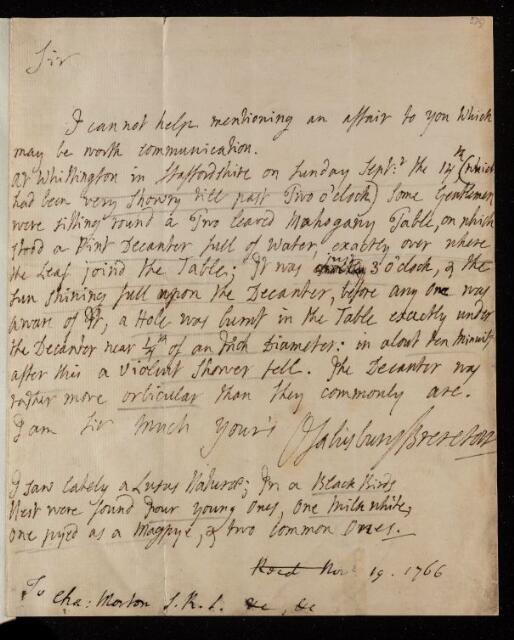 Sir
I cannot help mentioning an affair to you which
may be worth communication.
at Whittington in Staffordshire on Sunday Sept.r the 14th (which
had been very Showry till past Two o'clock) Some Gentlemen
were sitting round a Two leaved Mahogany Table, on which
stood a Pint Decanter full of Water, exactly over where
the Leaf joind the Table; It was just 3 o'clock, & the
Sun shining full upon the Decanter, before any One was
aware of It, a Hole was burnt in the Table exactly under
the Decanter near 1/4th of an Inch Diameter: in about ten Minuits
after this a Violent Shower fell. The Decanter was
rather more orbicular than they commonly are.
I am Sir Much Your's OSalisburyBrereton
I saw lately a Lusus Naturæ; In a Black Birds
Nest were found Four young Ones, One Milk white,
One pyed as a Magpye, & two common Ones.
Read Nov. 19. 1766
To Cha: Morton S.R.S. &c, &c